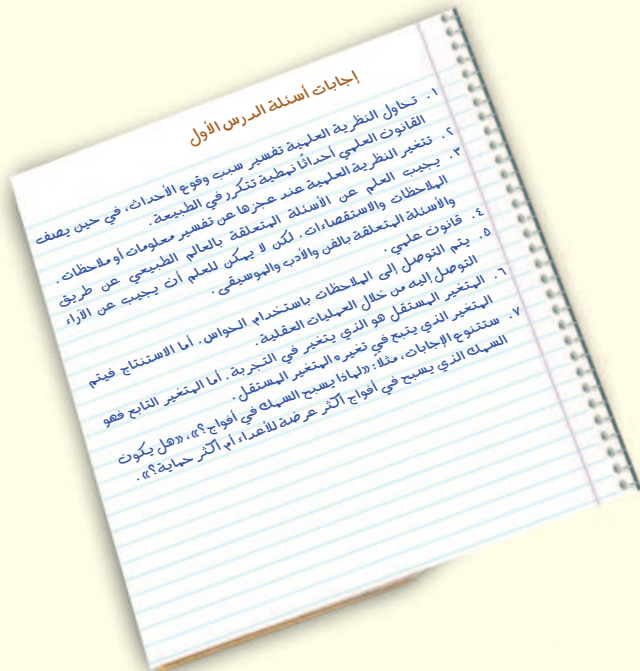 إجابات أسئلة الدرس الأول
١. تحاول النظرية العلمية تفسير سبب وقوع الأحداث، في حين يصف
القانون العلمي أحداثًا نمطية تتكرر في الطبيعة.
٢. تتغير النظرية العلمية عند عجزها عن تفسير معلومات أو ملاحظات.
٣. يجيب العلم عن الأسئلة المتعلقة بالعالم الطبيعي عن طريق
الملاحظات والاستقصاءات. لكن لا يمكن للعلم أن يجيب عن الآراء
والأسئلة المتعلقة بالفن والأدب والموسيقى.
٤. قانون علمي.
٥. يتم التوصل إلى الملاحظات باستخدام الحواس. أما الاستنتاج فيتم
التوصل إليه من خلال العمليات العقلية.
٦. المتغير المستقل هو الذي يتغير في التجربة. أما المتغير التابع فهو
المتغير الذي يتبع في تغيره المتغير المستقل.
٧. ستتنوع الإجابات، مثلًا: «لماذا يسبح السمك في أفواج؟»، «هل يكون
السمك الذي يسبح في أفواج أكثر عرضة للأعداء أم أكثر حماية؟».